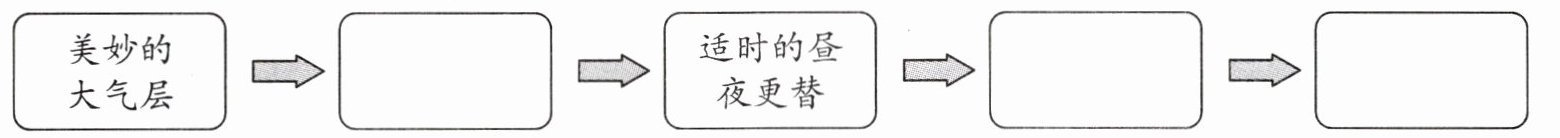 美妙的
大气层
适时的昼
夜更替